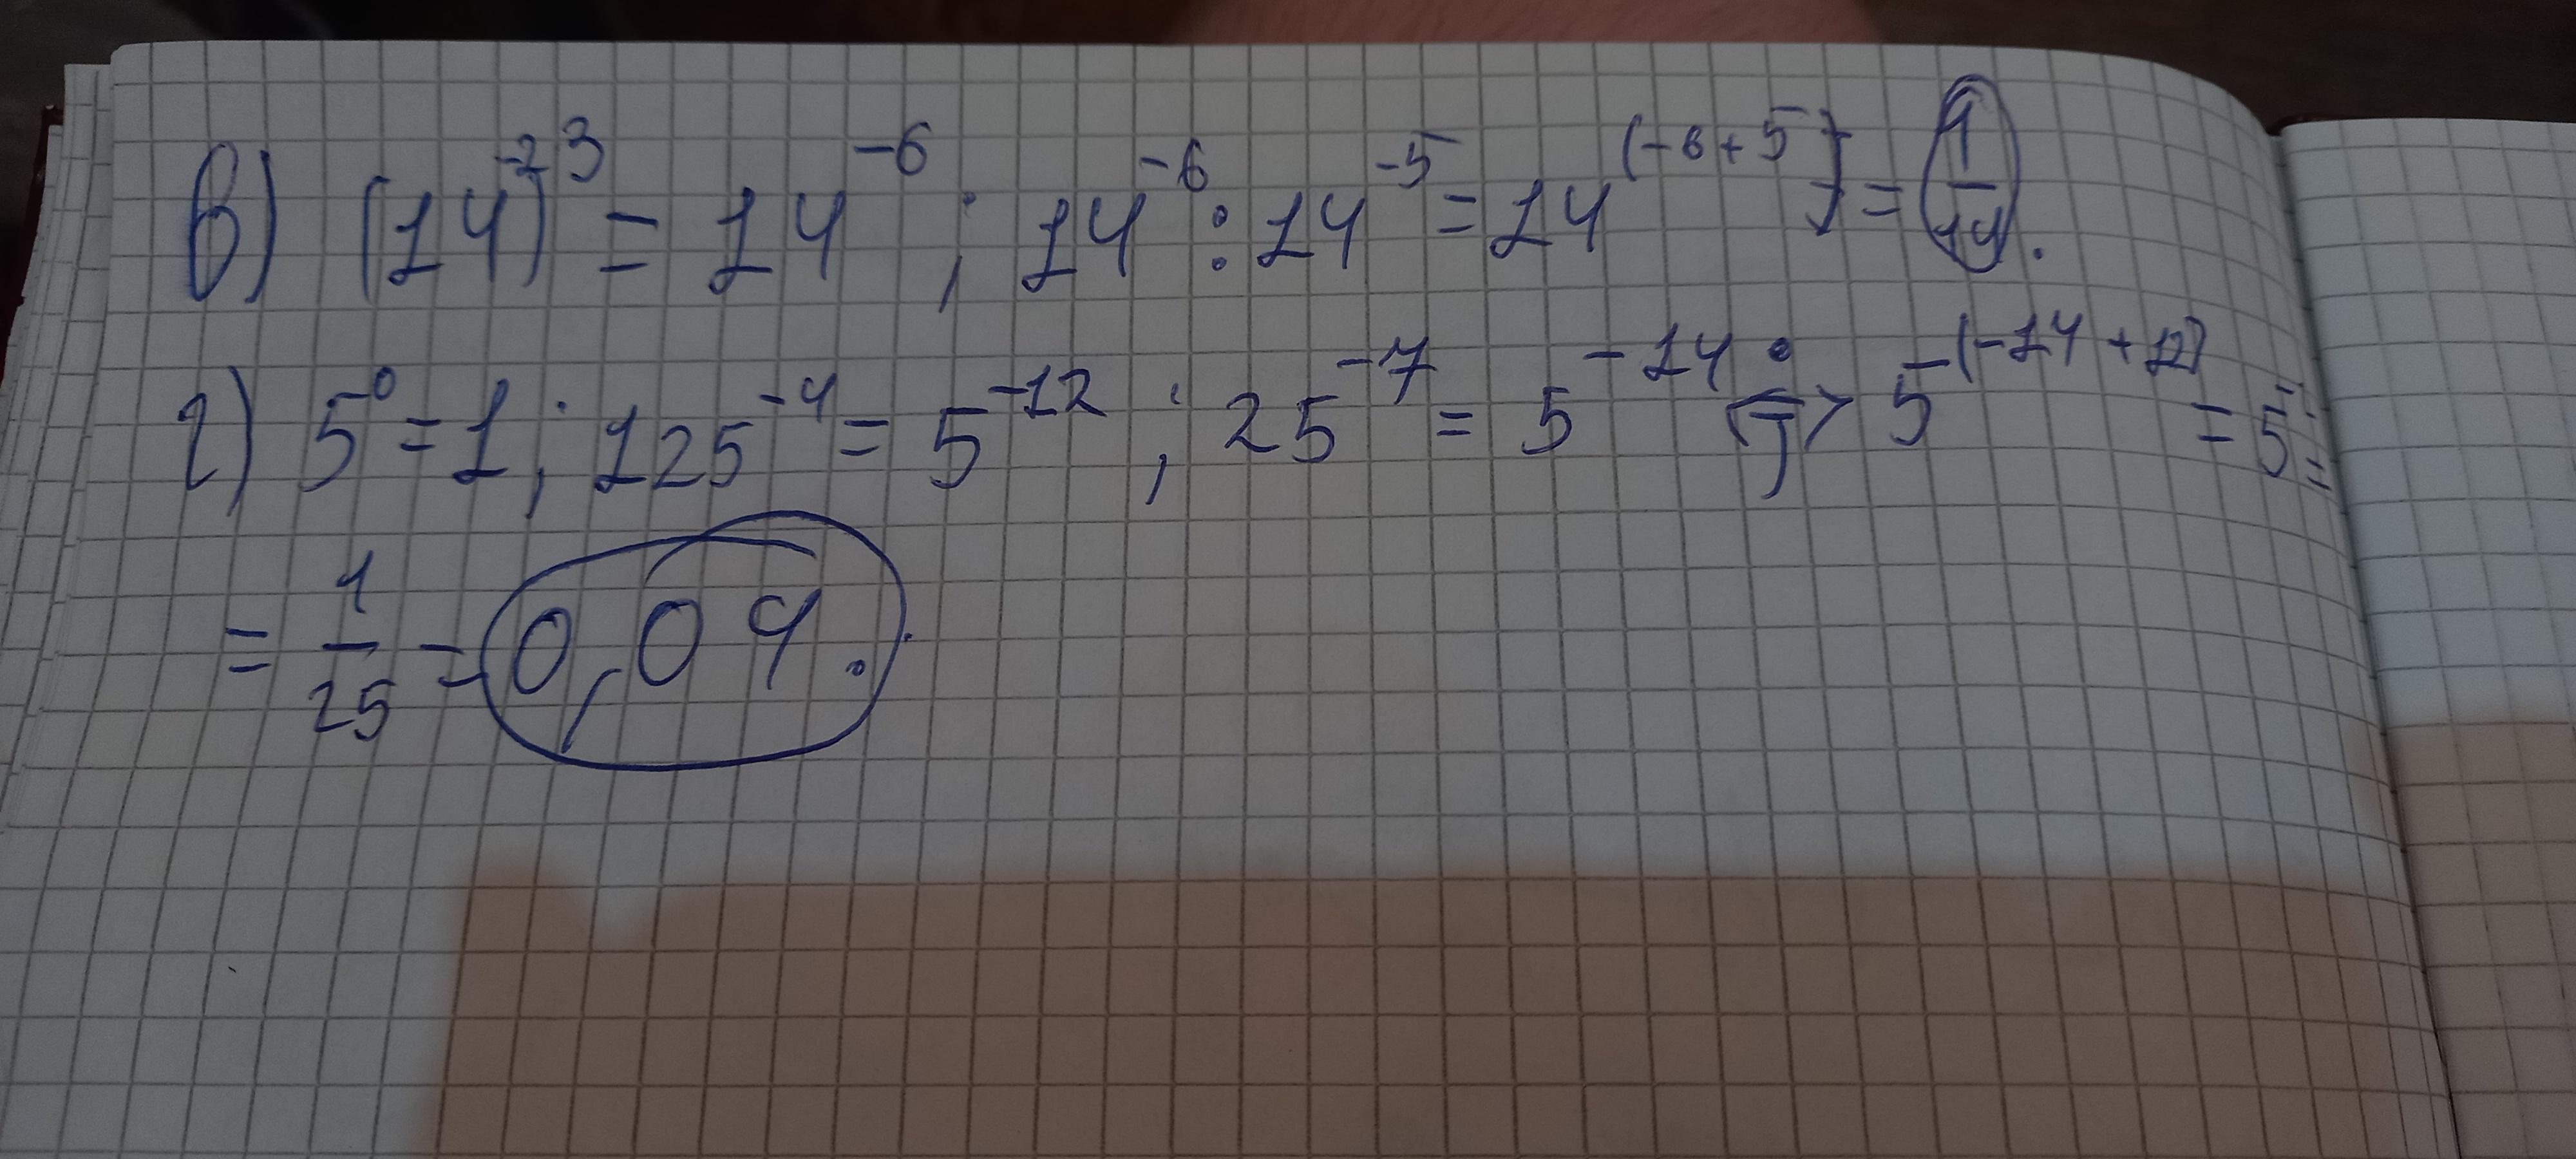 в) (14⁻²)³ = 14⁻⁶ ; 14⁻⁶ : 14⁻⁵ = 14⁽⁻⁶⁺⁵⁾ = 1/14.
г) 5⁰ = 1 ; 125⁻⁴ = 5⁻¹² ; 25⁻⁷ = 5⁻¹⁴ ; => 5⁽⁻¹⁴⁺¹²⁾ = 5⁻² =
= 1/25 = 0,04.